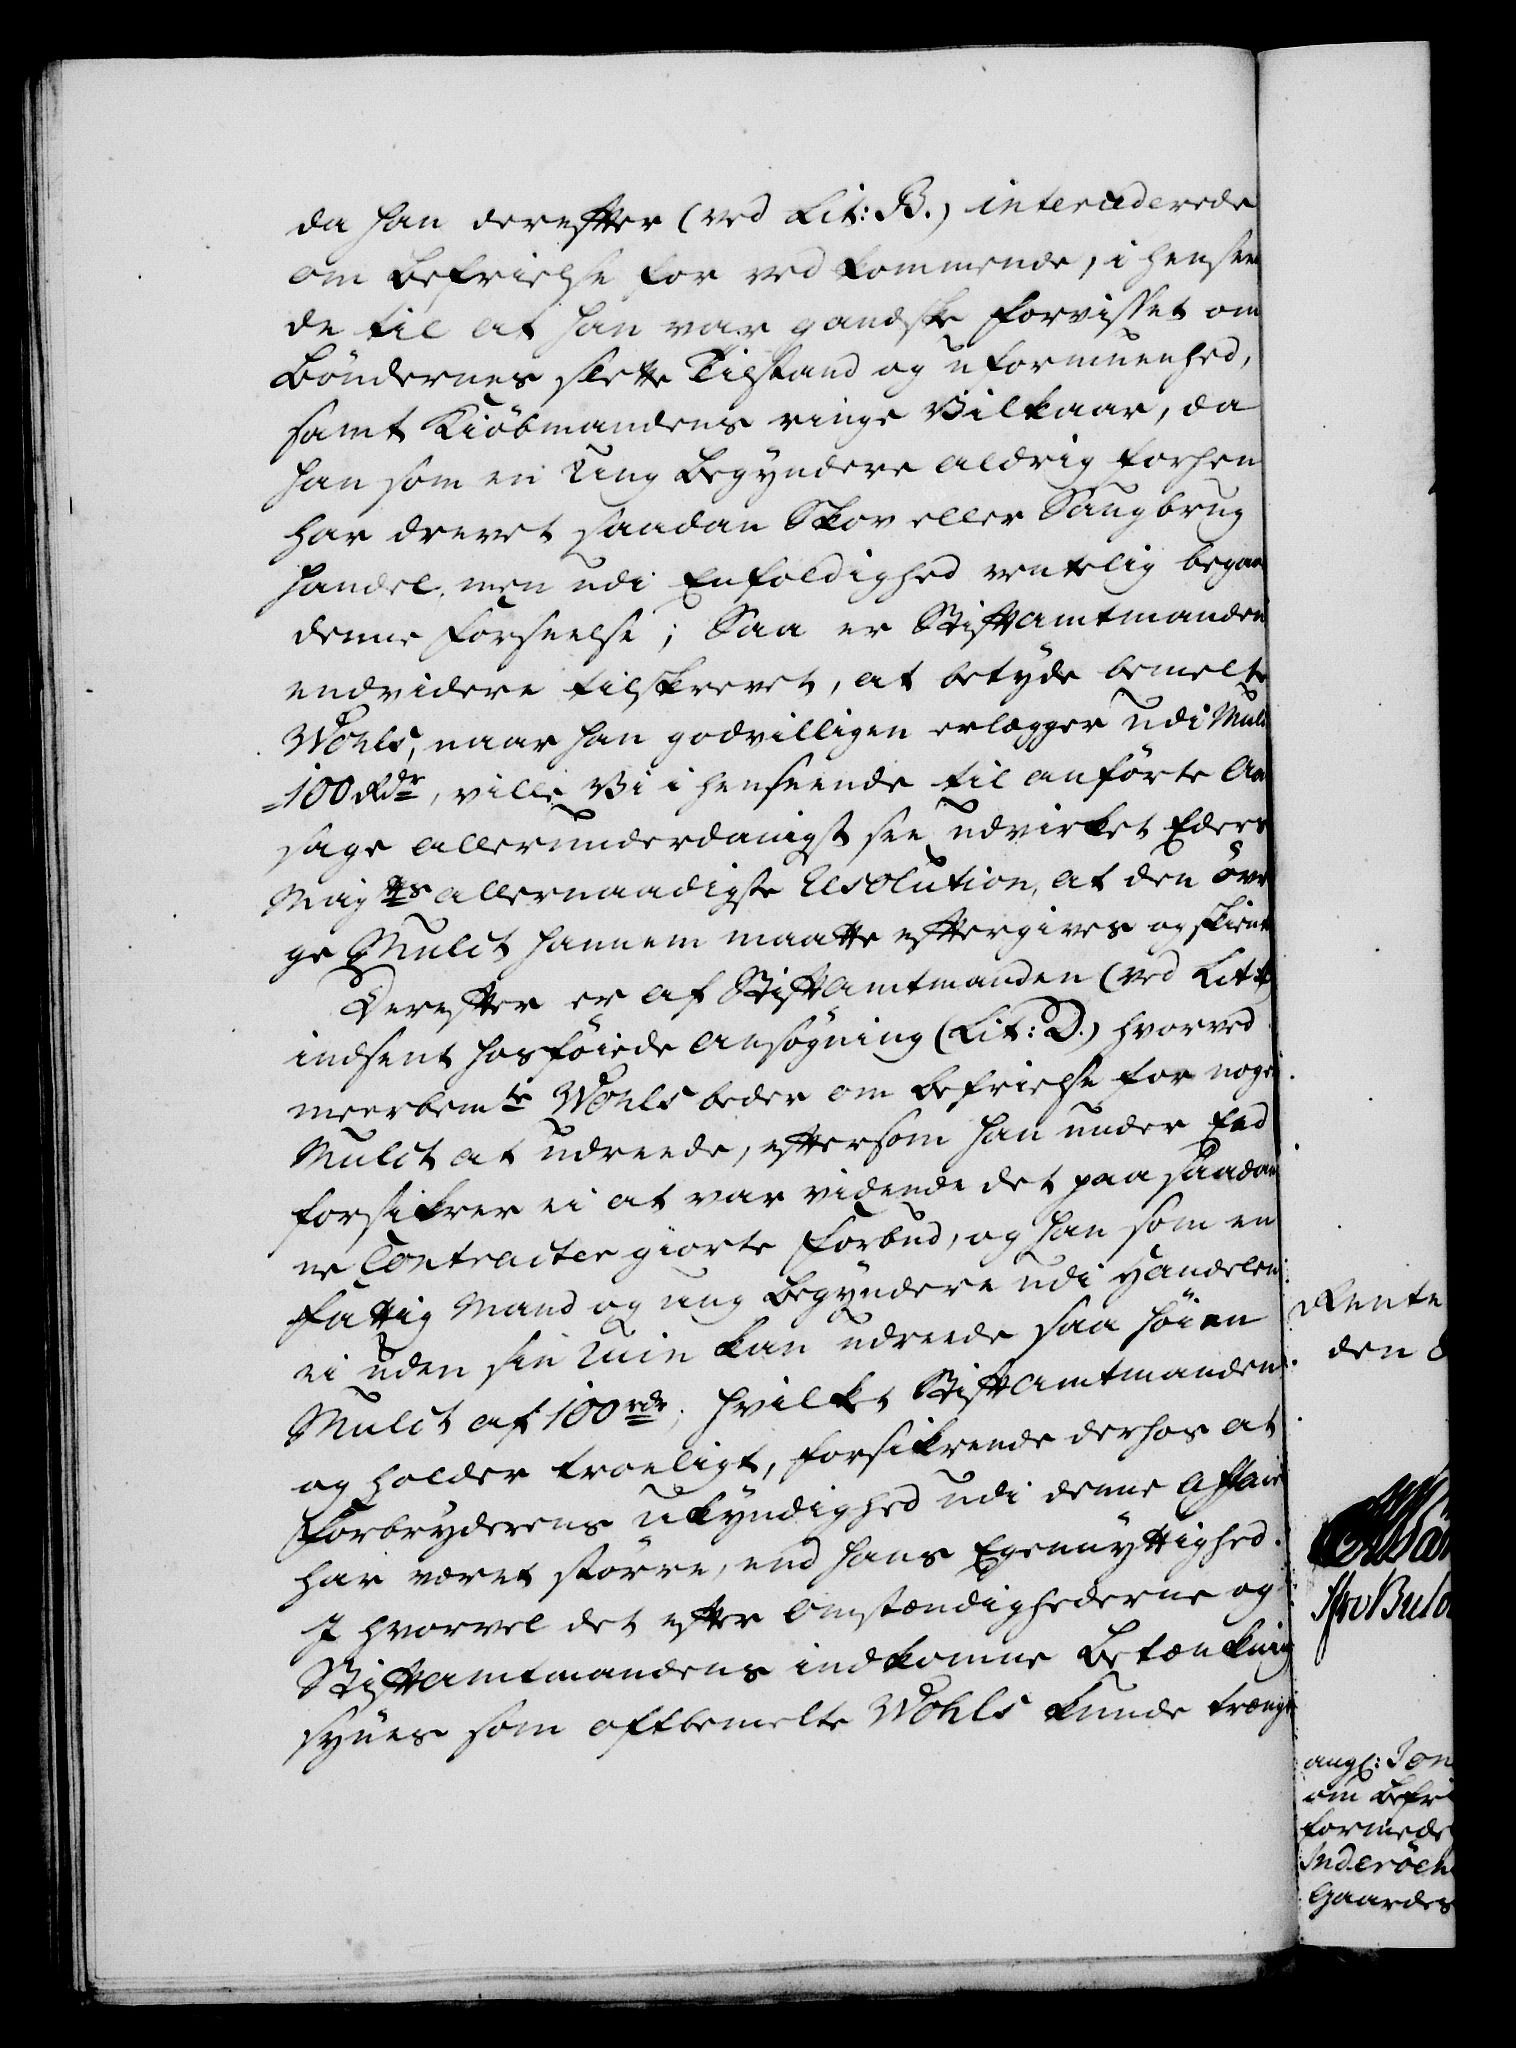 da han derefter (ved Lit: B.) intercederede
om Befrielse for vedkommende, i henseen
de til at han var gandske forvisset om
Böndernes slette Tilstand og uformuenhed,
samt Kiöbmandens ringe Vilkaar, da
han som en Ung Begyndere aldrig forhen
har drevet saadan Skov eller Saugbrug
Handel, men udi Eenfoldighed ventelig begaa
denne Forseelse; Saa er Stiftamtmanden
endvidere tilskrevet, at betyde bemelte
Wohls, naar han godvilligen erlegger udi Mulc
100 Rdr, ville Vi i henseende til anförte Aar
sage allerunderdanigst see udvirket Eders
Mayts allernaadigste Resolution, at den övri
ge Mulct hannem maatte eftergives og skienk
Derefter er af Stiftamtmanden (ved Litt
indsent hosföiede Ansögning (Lit: D.) hvorved
meerbemte Wohls beder om Befrielse for noge
Mulct at udreede, eftersom han under Eed
forsikrer ei at var vidende det paa saadan
ne Contracter giorte Forbud, og han som en
fattig Mand og ung Begyndere udi Handelen
ei uden sin Ruin kan udreede saa höi en
Mulct af 100 rdr, hvilket Stiftamtmanden
og holder troeligt, forsikrende derhos at
Forbryderens Ukyndighed udi denne Affaire
har været större, end hans Egennyttighed.
I hvorvel det efter Omstændighederne og
Stiftamtmandens indkomne Betænkning
synes som oftbemelte Wohls kunde trænge
Rente
den 8
angl: Jon
om Befri
formedel
Inderöen
Gaardes